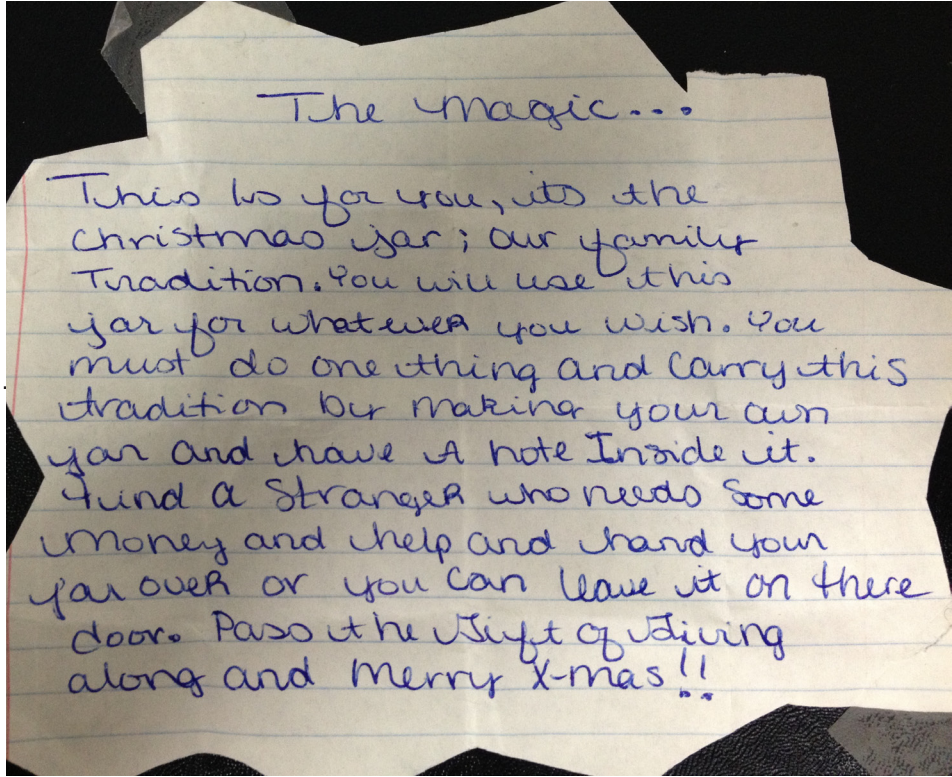 The magic...
This is for you, its the
christmas jar; our family
Tradition. You will use this
jar for whatever you wish. You
must do one thing and Carry this
tradition by making your own
jar and have A note Inside it.
Find a Stranger who needs Some
money and help and hand your
jar over or you can leave it on there
door. Pass the Gift of Giving
along and Merry X-mas!!